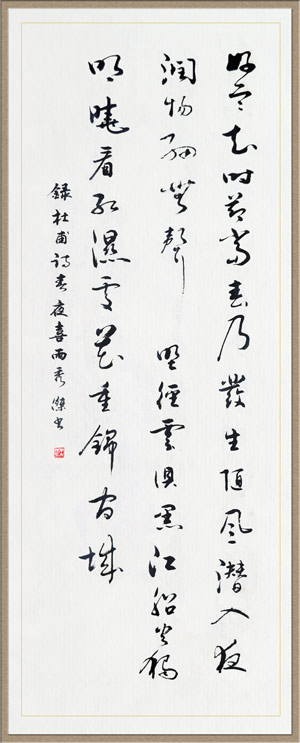 好雨知時節當春乃發生隨風潛入夜
潤物細無聲野徑雲俱黑江船火獨
明曉看紅濕處花重錦官城
錄杜甫詩春夜喜雨秀傑书